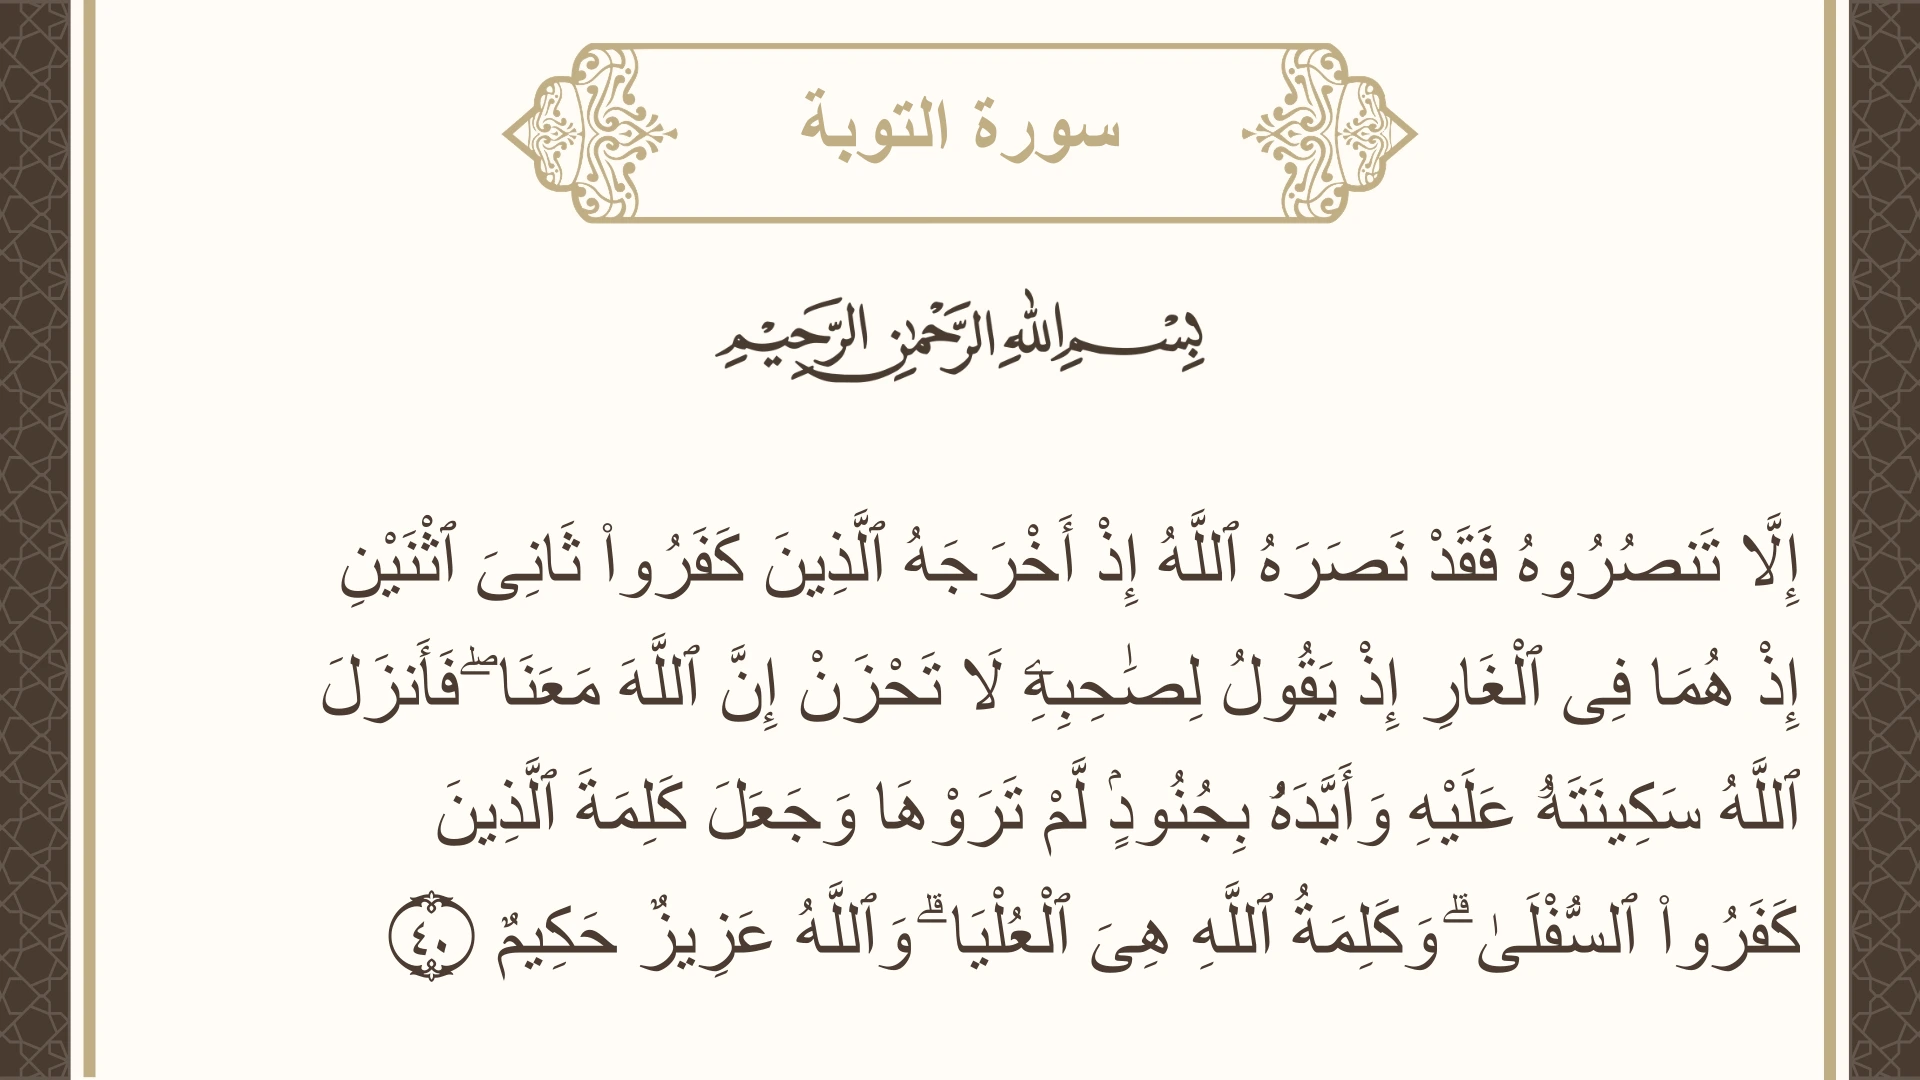 سورة التوبة
بِسْمِ اللهِ الرَّحْمٰنِ الرَّحِيْمِ
إِلَّا تَنصُرُوهُ فَقَدْ نَصَرَهُ ٱللَّهُ إِذْ أَخْرَجَهُ ٱلَّذِينَ كَفَرُوا۟ ثَانِىَ ٱثْنَيْنِ
إِذْ هُمَا فِى ٱلْغَارِ إِذْ يَقُولُ لِصَٰحِبِهِۦ لَا تَحْزَنْ إِنَّ ٱللَّهَ مَعَنَا ۖ فَأَنزَلَ
ٱللَّهُ سَكِينَتَهُۥ عَلَيْهِ وَأَيَّدَهُۥ بِجُنُودٍۢ لَّمْ تَرَوْهَا وَجَعَلَ كَلِمَةَ ٱلَّذِينَ
كَفَرُوا۟ ٱلسُّفْلَىٰ ۗ وَكَلِمَةُ ٱللَّهِ هِىَ ٱلْعُلْيَا ۗ وَٱللَّهُ عَزِيزٌ حَكِيمٌ ٤٠